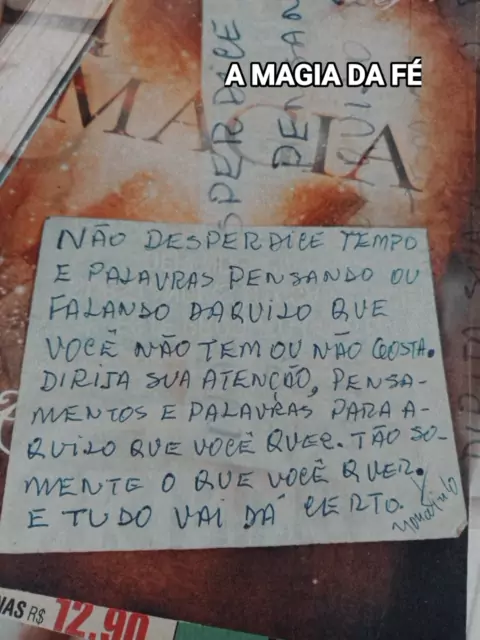 A MAGIA DA FÉ
MAGIA
SPERDICE
PENSAN
NÃO DESPERDICE TEMPO
E PALAVRAS PENSANDO OU
FALANDO DAQUILO QUE
VOCÊ NÃO TEM OU NÃO GOSTA.
DIRIJA SUA ATENÇÃO, PENSA-
MENTOS E PALAVRAS PARA A-
QUILO QUE VOCÊ QUER. TÃO SO-
MENTE O QUE VOCÊ QUER.
E TUDO VAI DÁ CERTO.
NAS R$ 12,90